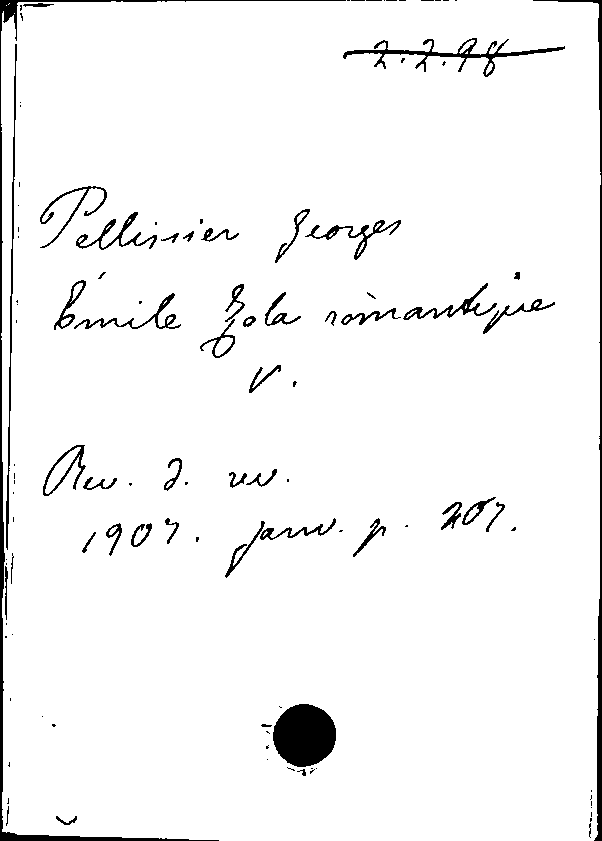 2.2.98
Pellissier Georges
Émile Zola romantique
V.
Rev. d. rev.
1907. janv. p. 207.